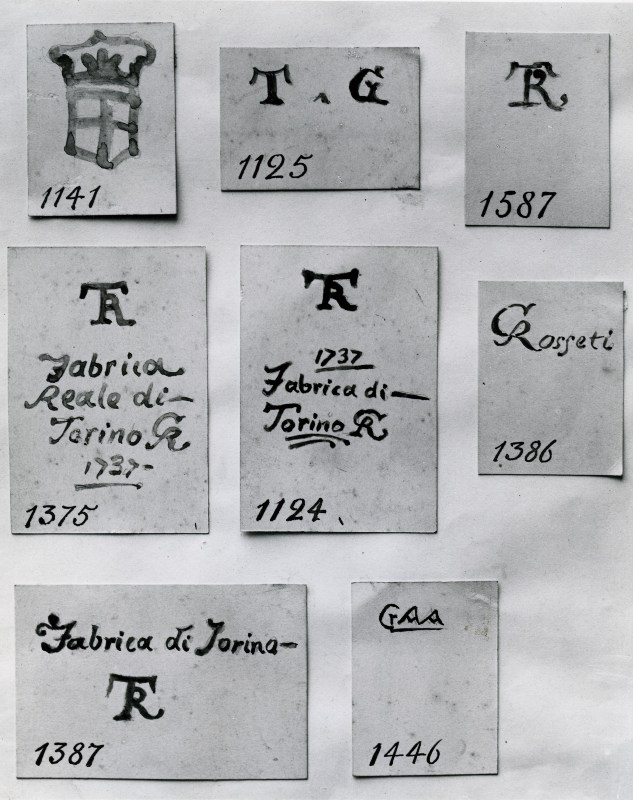 1141
T G
1125
TR
1587
TR
Fabrica
Reale di-
Torino GR
1737-
1375
TR
1737
Fabrica di-
Torino GR
1124
GRosseti
1386
Fabrica di Torino-
TR
1387
GAA
1446